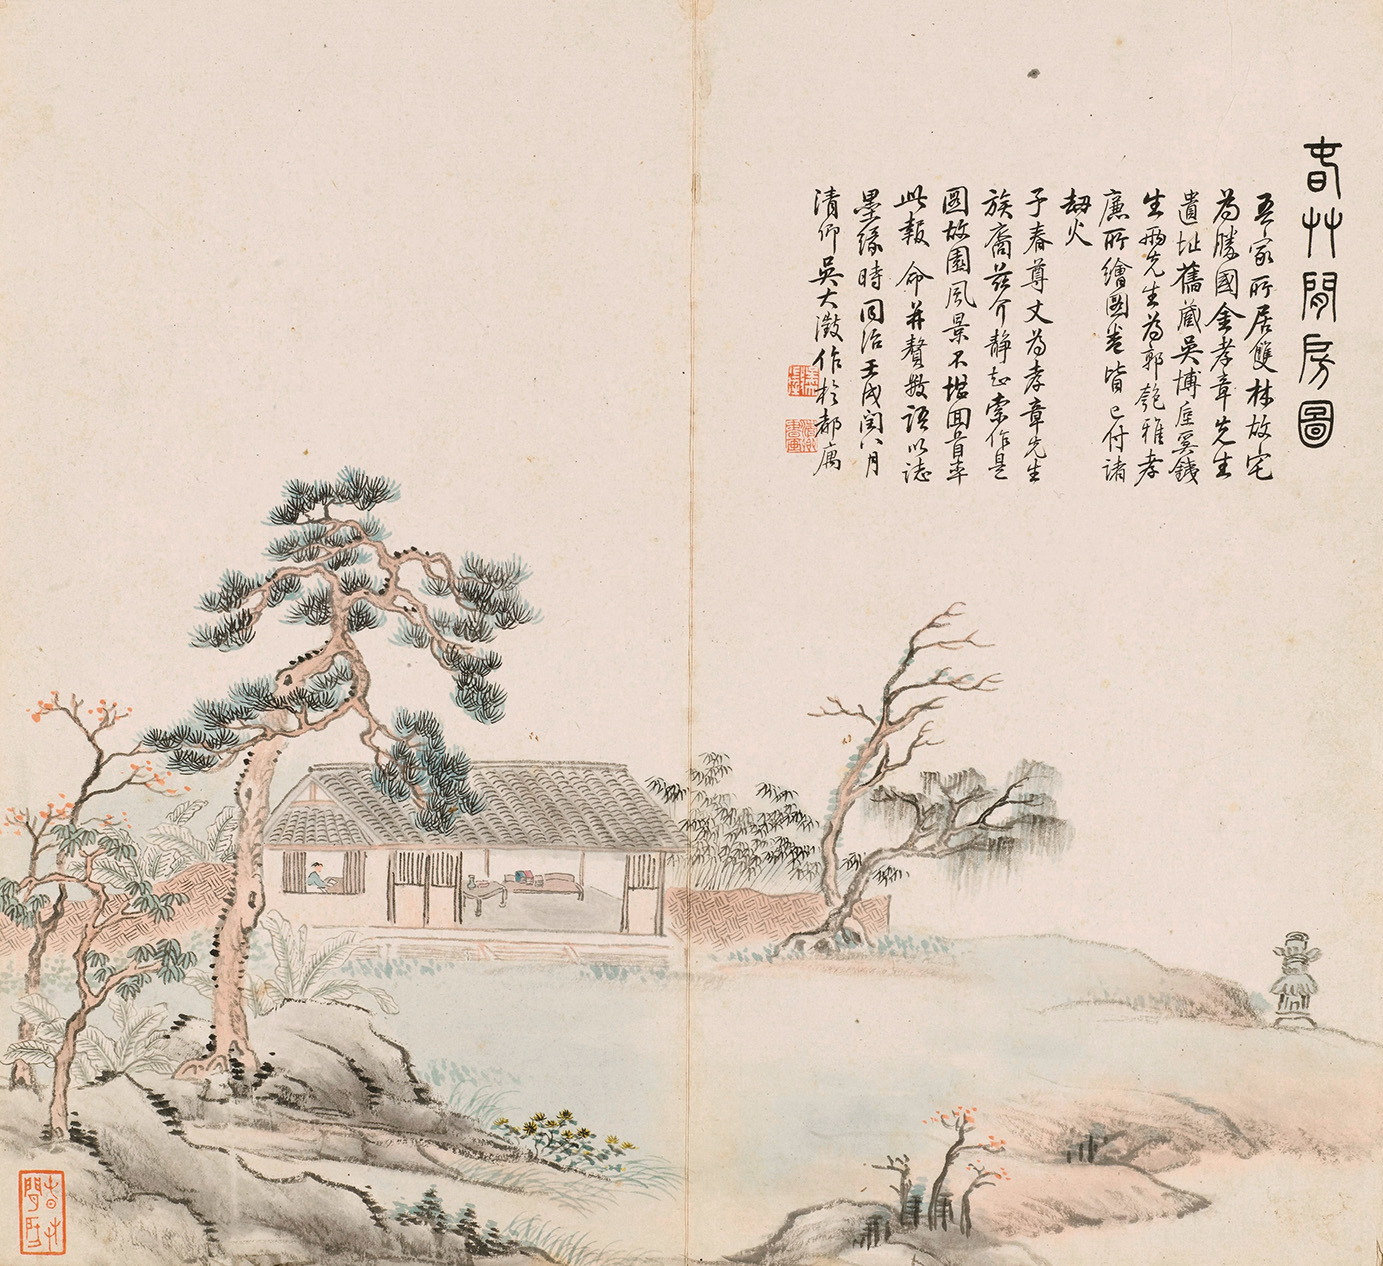 春艸閒房圖
吾家所居雙林故宅
為勝國金孝章先生
遺址舊藏吳博庭奚錢
生兩先生為郭匏雅孝
廉所繪圖卷皆已付諸
劫火
子春尊丈為孝章先生
族裔茲介靜知索作是
圖故園風景不堪回首率
此報命并贅數語以誌
墨緣時同治壬戌閏八月
清仰吳大澂作於都寓
春艸閒房